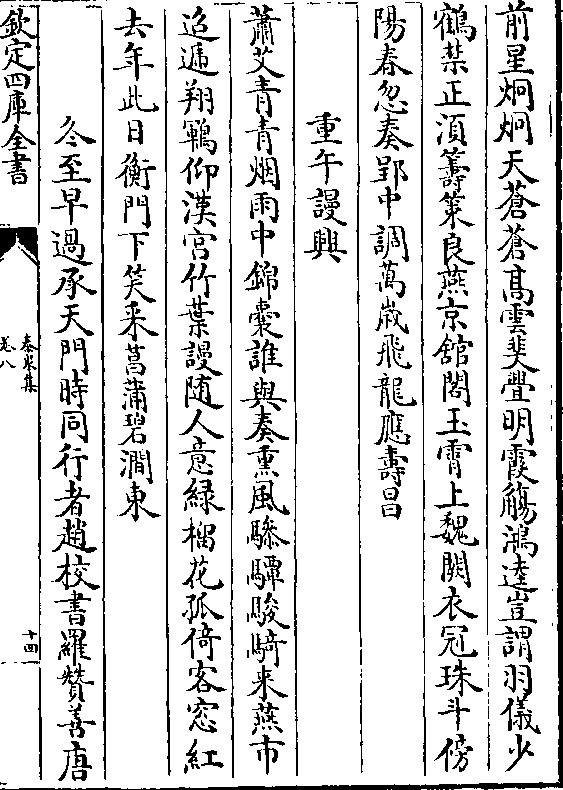 前星炯炯天蒼蒼髙雲斐亹明霞觴鴻逵豈謂羽儀少
鶴禁正湏籌策良燕京舘閣玉霄上魏闕衣冠珠斗傍
陽春忽奏郢中調萬歲飛龍應壽昌
重午謾興
蕭艾青青烟雨中錦囊誰與奏熏風驂驔駿騎来燕市
迢遞翔鶤仰漢宮竹葉謾随人意緑榴花孤倚客窓紅
去年此日衡門下笑采菖蒲碧澗東
冬至早過承天門時同行者趙校書羅贊善唐
欽定四庫全書
卷八
十四